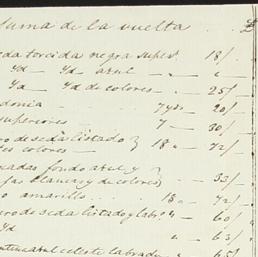 suma de la vuelta
eda torcida negra supes^r 18/-
Yd — Yd azul " — "
Yd — Yd de colores — 25/-
donia — 7 yds — 20/-
uperiores 7 — 30/-
ro de seda listado 18 " — 72/-
es colores
cadas fondo azul y — 33/-
jas blancas y de colores
o amarillo 18 " — 72/-
ero de seda listado y labr " — 60/-
" — 63/-
azul celeste labrado 65/-